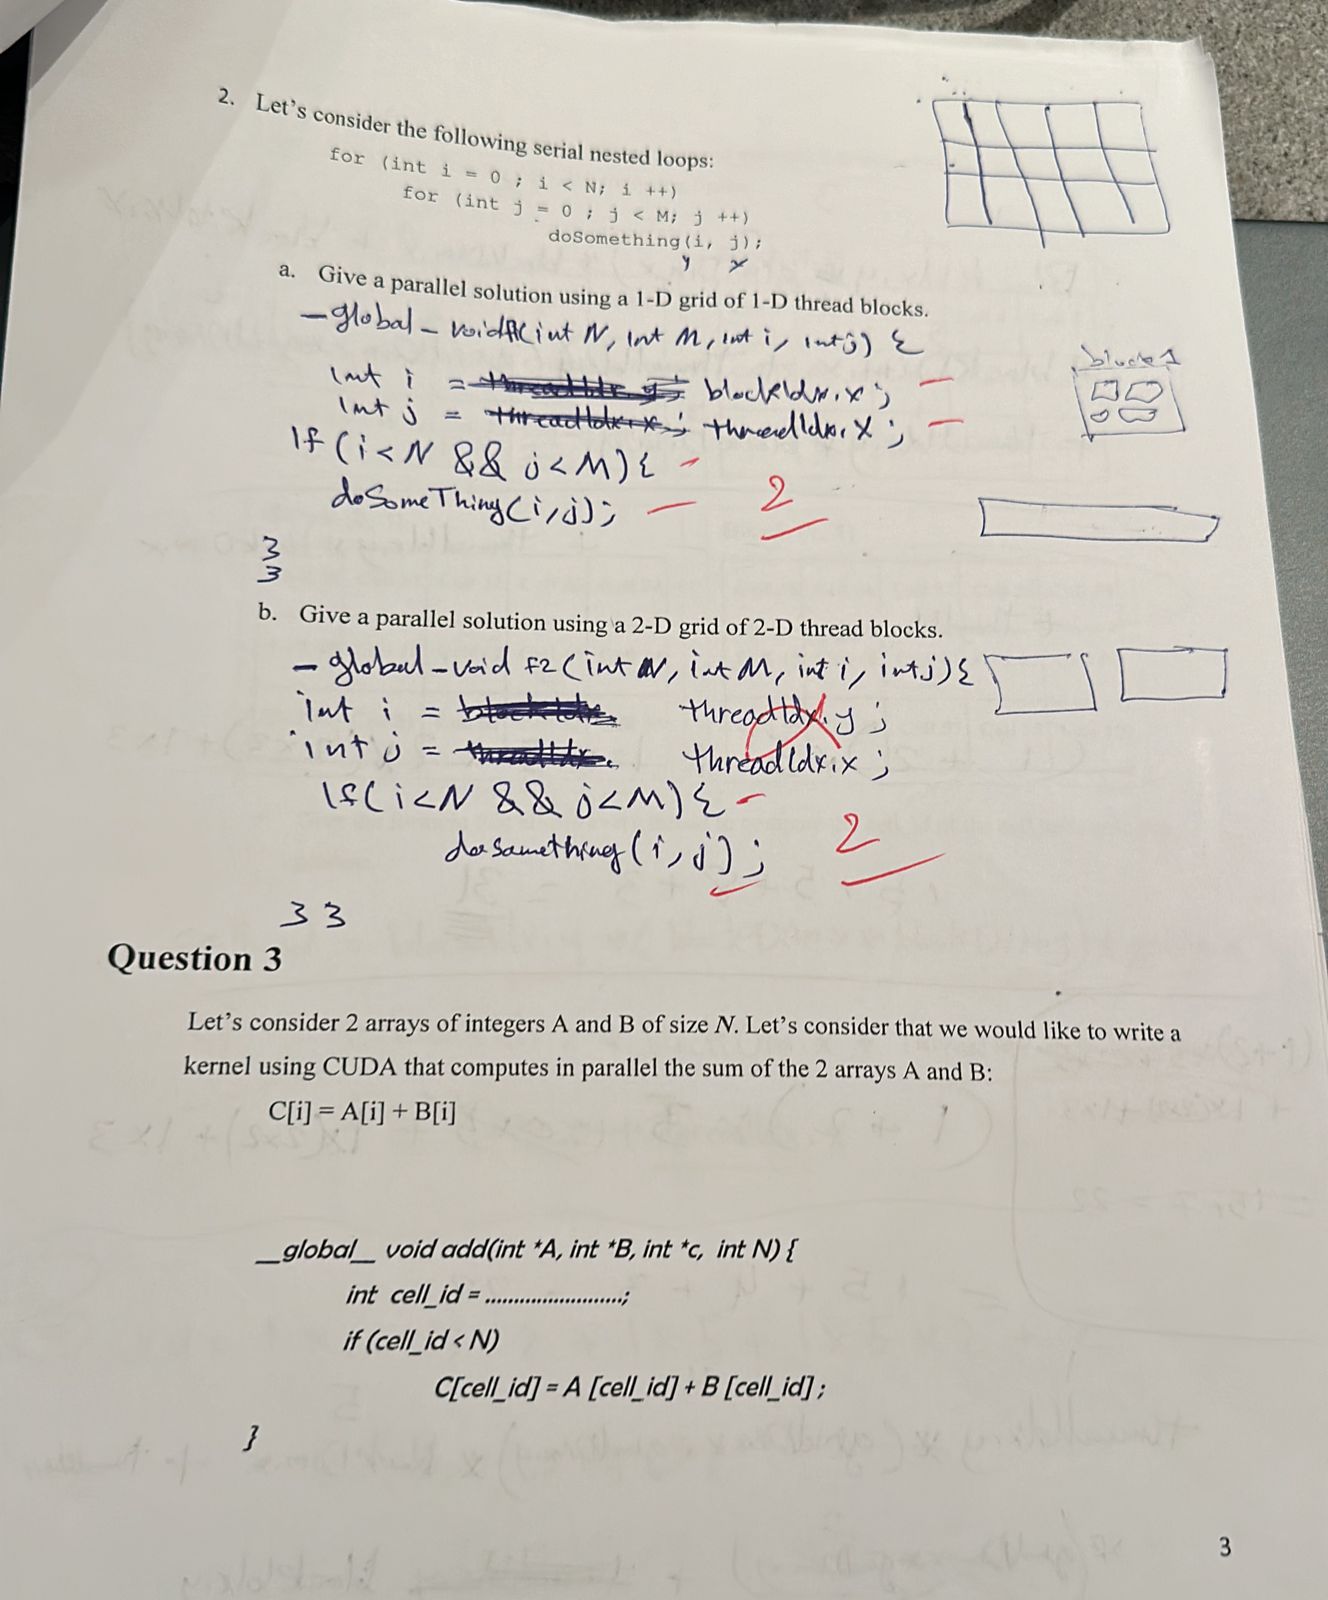 2. Let's consider the following serial nested loops:
for (int i = 0 ; i < N; i ++)
for (int j = 0 ; j < M; j ++)
doSomething(i, j);
y x
a. Give a parallel solution using a 1-D grid of 1-D thread blocks.
_global_ void (int N, int M, int i, int j) {
int i = blockIdx.x;
int j = threadIdx.x;
If (i<N && j<M) {
doSomeThing(i,j);
2
}
}
block 1
b. Give a parallel solution using a 2-D grid of 2-D thread blocks.
_global_void f2 (int N, int M, int i, int j) {
int i = threadIdx.y;
int j = threadIdx.x;
If(i<N && j<M) {
dosomething(i,j);
2
} }
Question 3
Let's consider 2 arrays of integers A and B of size N. Let's consider that we would like to write a
kernel using CUDA that computes in parallel the sum of the 2 arrays A and B:
C[i] = A[i] + B[i]
__global__ void add(int *A, int *B, int *c, int N) {
int cell_id = ........................;
if (cell_id < N)
C[cell_id] = A [cell_id] + B [cell_id] ;
}
3